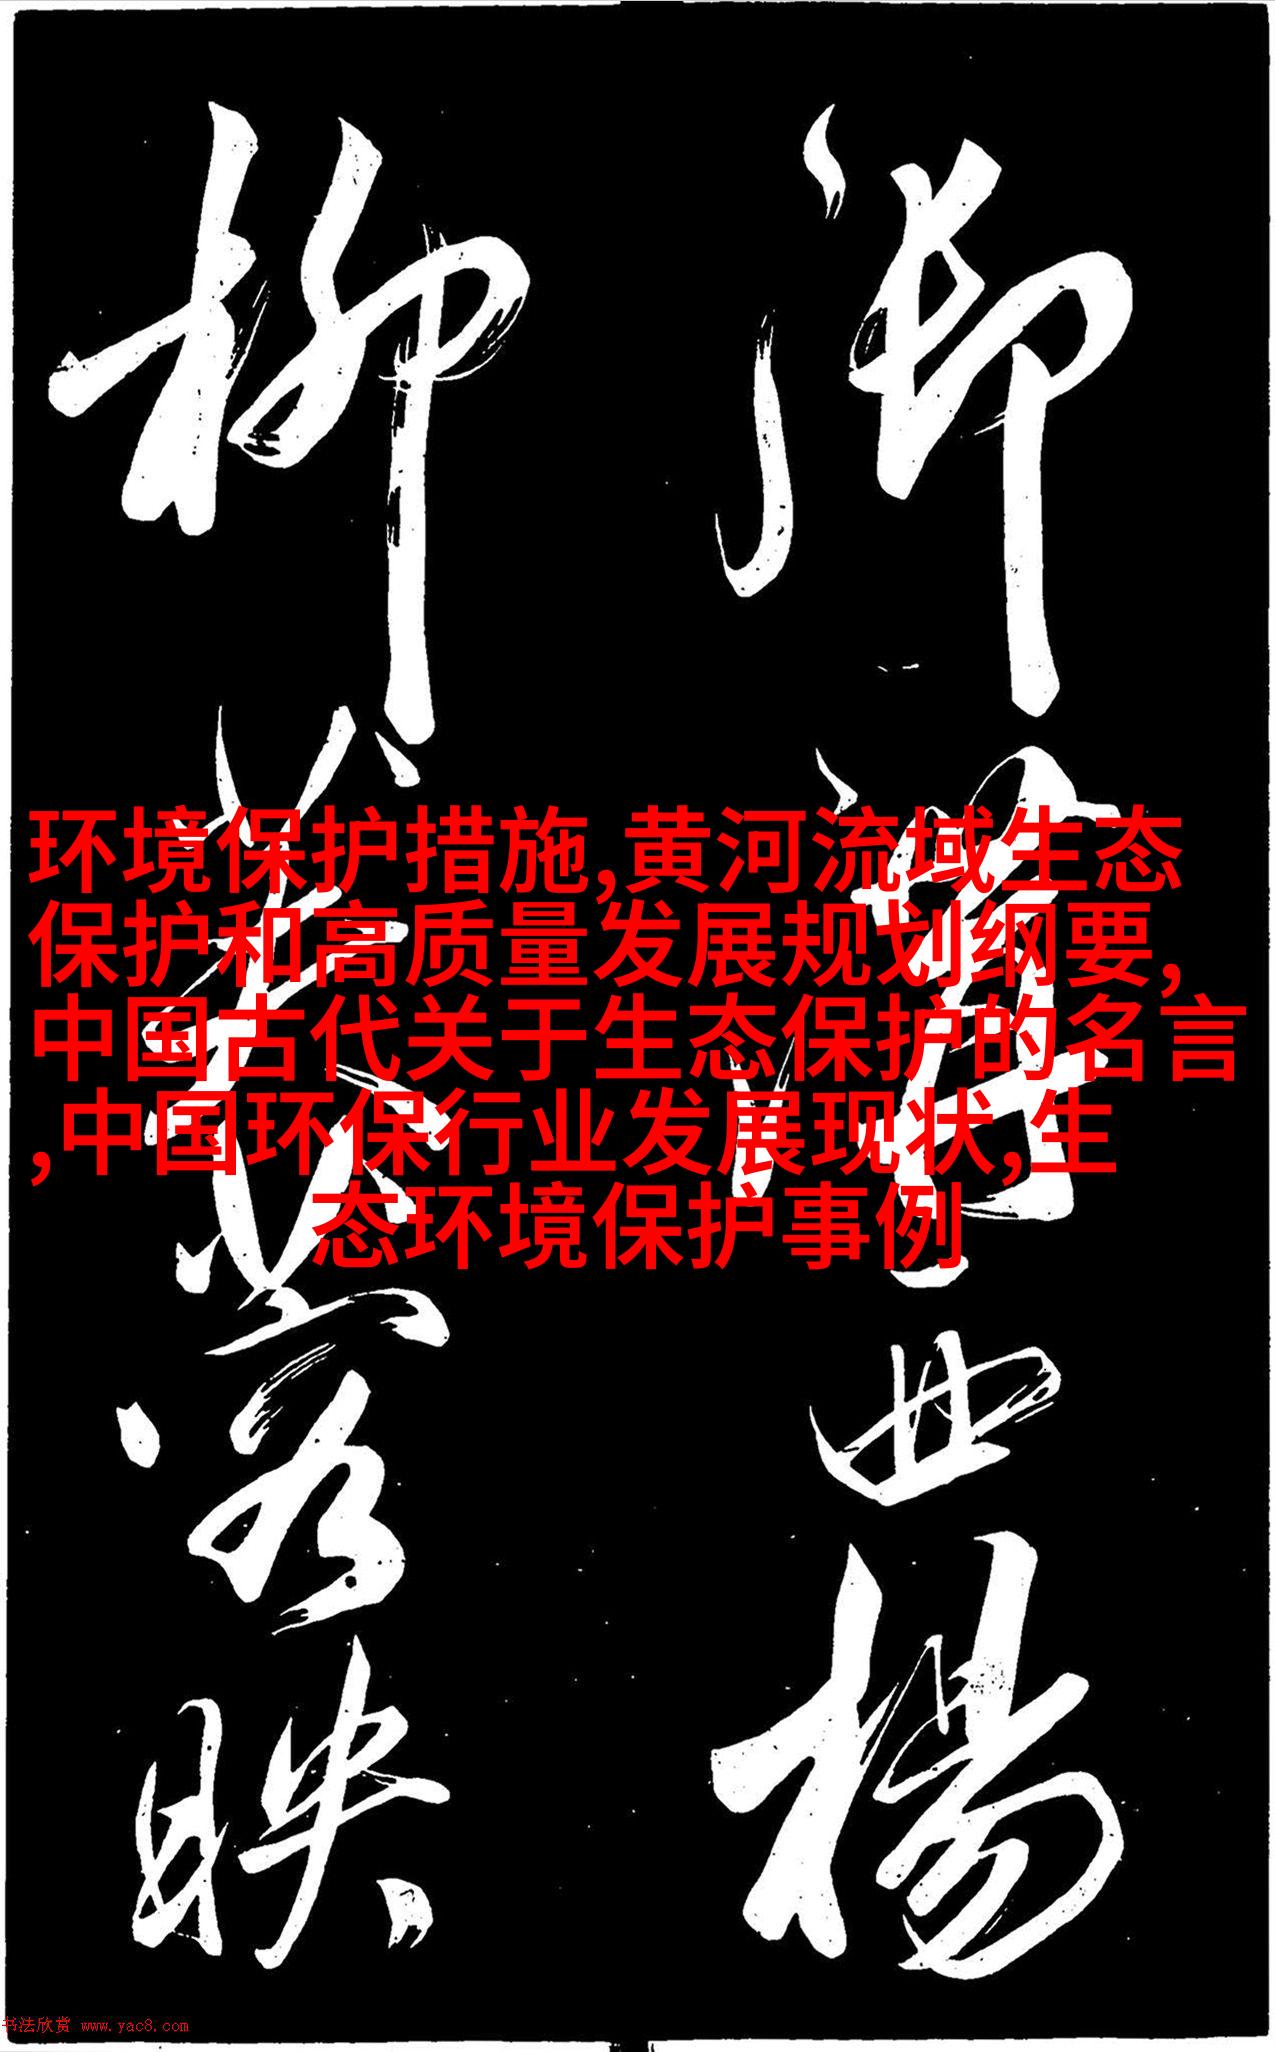 御溝曲楊
柳映
环境保护措施,黄河流域生态
保护和高质量发展规划纲要,
中国古代关于生态保护的名言
,中国环保行业发展现状,生
态环境保护事例
书法欣赏 www.yac8.com